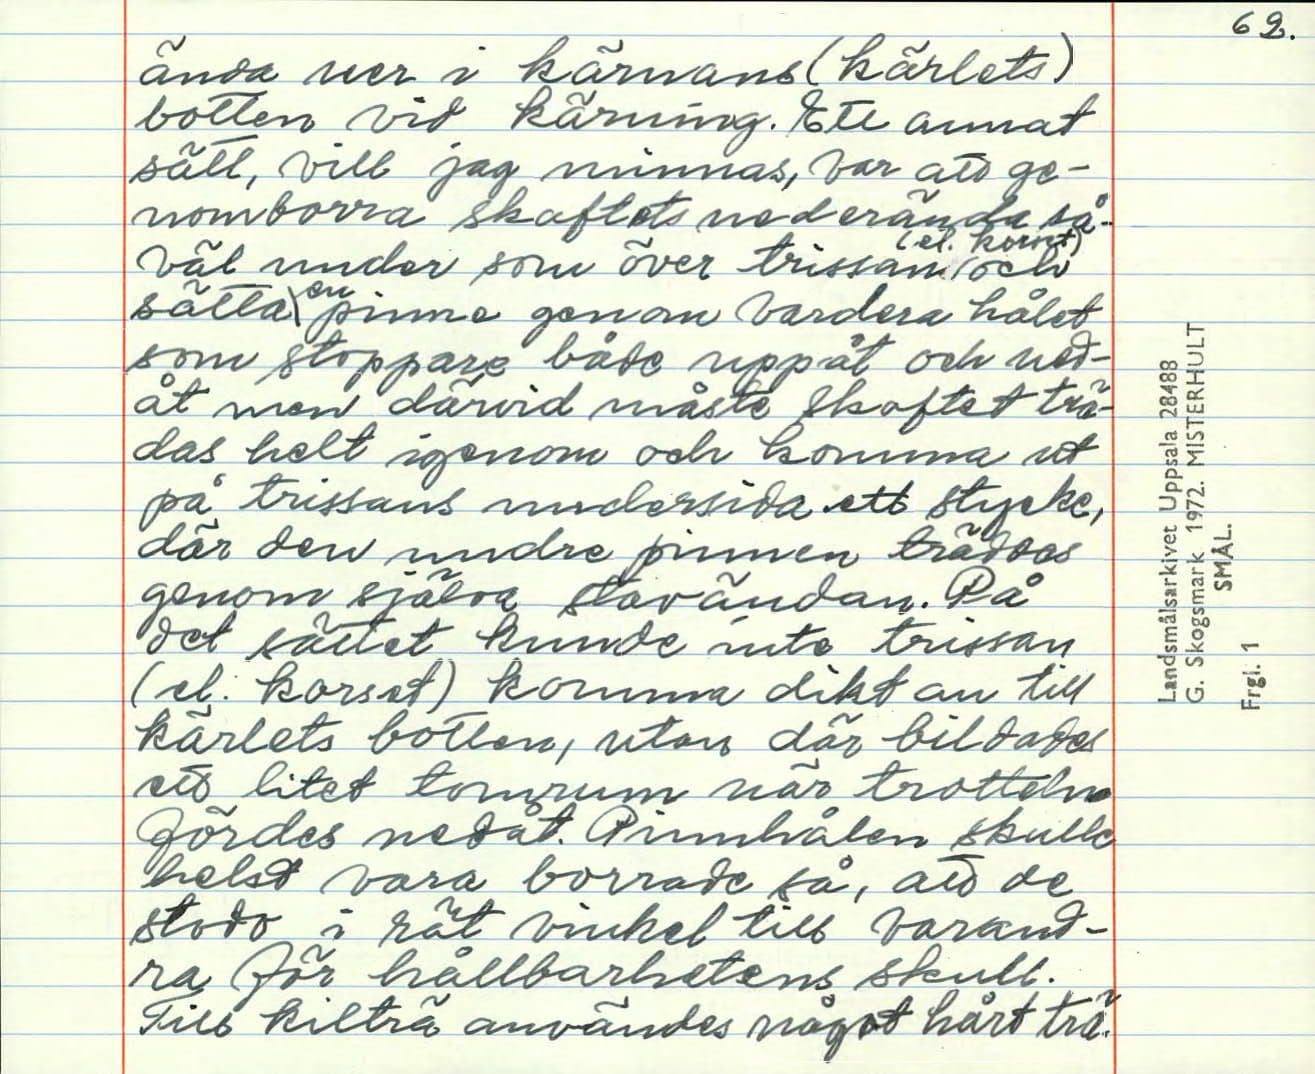 62.
ända ner i kärnans (kärlets)
botten vid kärning. Ett annat
sätt, vill jag minnas, var att ge-
nomborra skaftets nederända så-
väl under som över trissan (el. korset) och
sätta en pinne genom vardera hålet
som stoppare både uppåt och ned-
åt men därvid måste skaftet trä-
das helt igenom och komma ut
på trissans undersida ett stycke,
där den undre pinnen träddes
genom själva stavändan. På
det sättet kunde inte trissan
(el. korset) komma dikt an till
kärlets botten, utan där bildades
ett litet tomrum när trotteln
fördes nedåt. Pinnhålen skulle
helst vara borrade så, att de
stodo i rät vinkel till varand-
ra för hållbarhetens skull.
Till kilträ användes något hårt trä.
Landsmålsarkivet Uppsala 28488
G. Skogsmark 1972. MISTERHULT
SMÅL.
Frgl. 1